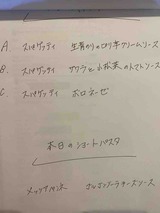 A. スパゲッティ 生青のりのロッキクリームソース
B. スパゲッティ サクラと小松菜のトマトソース
C. スパゲッティ ボロネーゼ
本日のショートパスタ
ゴルゴンゾーラチーズソース